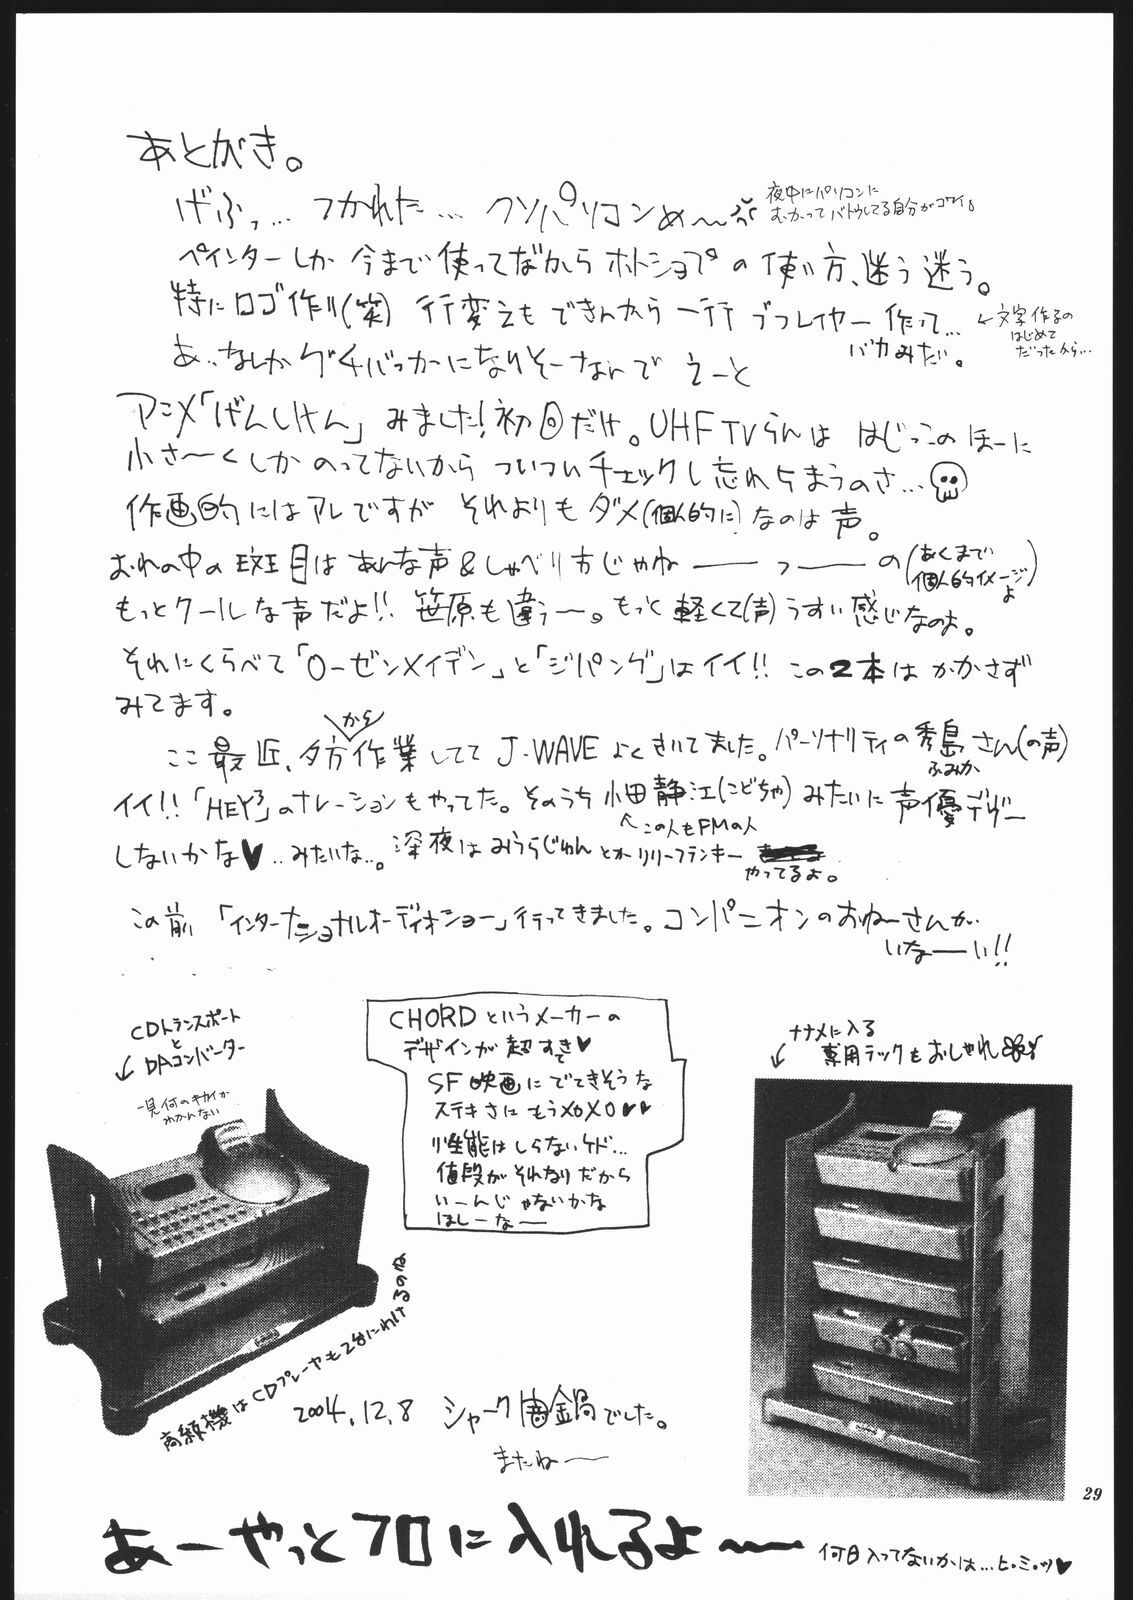 あとがき。
げふっ… つかれた… クソパソコンめ〜
夜中にパソコンに
むかってバトウしてる自分がコワイ。
ペインターしか今まで使ってなかったから ホトショプの使い方、迷う迷う。
特にロゴ作り(笑) 行変えもできんから 一行 づつレイヤー作って…
バカみたい。
← 文字作るの
はじめて
だったから…
あ、なんか グチバッカーになりそーなんで えーと
アニメ「げんしけん」みました!初回だけ。UHF TVらんは はじっこのほーに
小さ〜くしかのってないから ついついチェックし忘れちまうのさ…
作画的にはアレですが それよりもダメ(個人的に)なのは声。
おれの中の斑目はあんな声&しゃべり方じゃねーっーの(あくまで
個人的イメージよ)
もっとクールな声だよ!! 笹原も違うー。もっと軽くて(声)うすい感じなのよ。
それにくらべて「ローゼンメイデン」と「ジパング」はイイ!! この2本はかかさず
みてます。
ここ最近、夕方から作業してて J-WAVE よくきいてました。パーソナリティの秀島さん(の声)
ふみか
イイ!!「HEY³」のナレーションもやってた。そのうち小田静江(こどちゃ)みたいに声優デヴー
この人もFMの人
しないかな♥‥みたいな…。深夜はみうらじゅんとかリリーフランキー
やってるよ。
この前「インターナショナルオーディオショー」行ってきました。コンパニオンのおねーさんが
いなーい!!
CDトランスポート
と
DAコンバーター
一見何のキカイか
わかんない
CHORDというメーカーの
デザインが超すてき♥
SF映画にでてきそうな
ステキさに もうメロメロ♥♥
性能はしらないケド…
値段がそれなりだから
いーんじゃないかな
ほしーなー
ナナメに入る
専用ラックもおしゃれ
高級機はCDプレーヤも2台にわけるのね
2004.12.8 シャーク歯鍋でした。
またねー
29
あーやっとフロに入れるよ〜
何日入ってないかは…ヒ・ミ・ツ♥